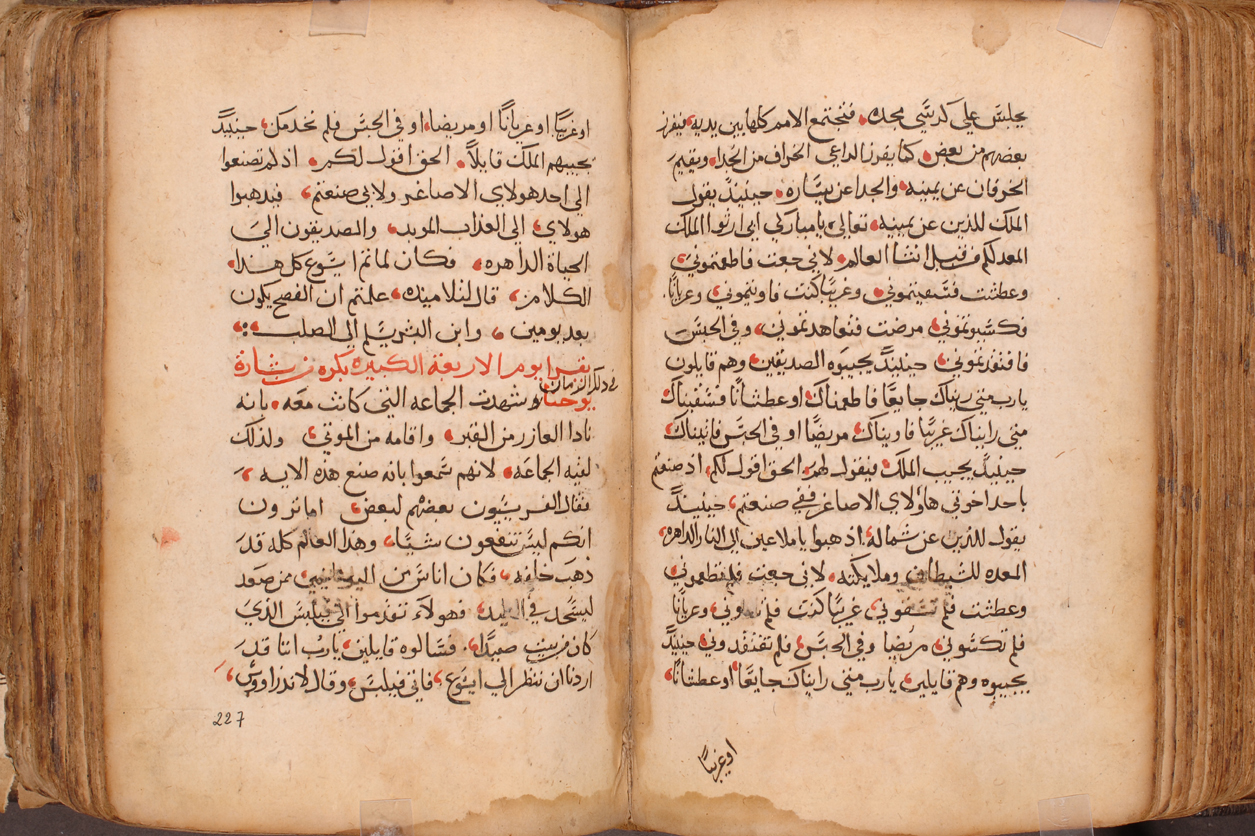 يجلس على كرسي مجده. فتجتمع الامم كلها بين يديه فيفرز
بعضهم من بعض كما يفرز الداعي الخراف من الجدا. ويقيم
الخرفان عن يمينه والجدا عن يساره. حينيدٍ يقول
الملك للذين عن يمينه. تعالى يا مباركي ابي ارثوا الملك
المعد لكم من قبل انشا العالم. لاني جعت فاطعمتموني
وعطشت فسقيتموني. وغريبًا كنت فاويتموني وعريانًا
فكسيوتموني مرضت فتعاهدتموني. وفي الحبس
فافتقدتموني حينيدٍ يجيبوه الصديقين وهم قايلون
يارب متى رايناك جايعًا فاطعمناك او عطشانًا فسقيناك
متى رايناك غريبًا فاويناك مريضًا او في الحبس فاتيناك
حينيدٍ يجيب الملك فيقول لهم الحق اقول لكم اد صنعتم
باحد اخوتي هاؤلاي الاصاغر ففي صنعتم حينيدٍ
يقول للذين عن شماله ادهبوا يا ملاعين الى النار الداهره
المعده للشيطان وملايكته. لاني جعت فلم تطعموني
وعطشت فلم تسقوني غريبًا كنت فلم تاووني وعريانًا
فلم تكسوني مريضا وفي الحبس فلم تفتقدوني حينيدٍ
يجيبوه وهم قايلين يارب متى رايناك جايعًا اد عطشانًا
او غريبًا
او غريبًا او عريانًا او مريضا او في الحبس فلم نخدمك حينيدٍ
يجيبهم الملك قايلاً. الحق اقول لكم. اذ لم تصنعوا
الى احد هولاي الاصاغر ولا بي صنعتم فيدهبوا
هولاي الى العذاب الموبد والصديقون الي
الحياة الداهره. فكان لما تم ايسوع كل هدا.
الكلام قال لتلاميده علمتم ان الفصح يكون
بعد يومين وابن البشر يسلم الى الصلب
يقرا يوم الاربعة الكبيره بكره من بشارة
في ذلك الزمان
يوحنا وشهدت الجماعه التي كانت معه. بانه
نادا العازر من القبر واقامه من الموتي ولذلك
لقيه الجماعه. لانهم سمعوا بانه صنع هذه الايه
فقال الفريسيون بعضهم لبعض اما ترون
انكم ليس تنفعون شيًا وهذا العالم كله قد
ذهب خلفه فكان اناس من اليونانيين ممن صعد
ليسجد في العيد فهولآء تقدموا الى فيلبس الذي
كان من بيت صيدا. فسالوه قايلين يارب اننا قد
اردنا ان ننظر الي ايسوع فاتي فيلبس وقال لاندراوس
227